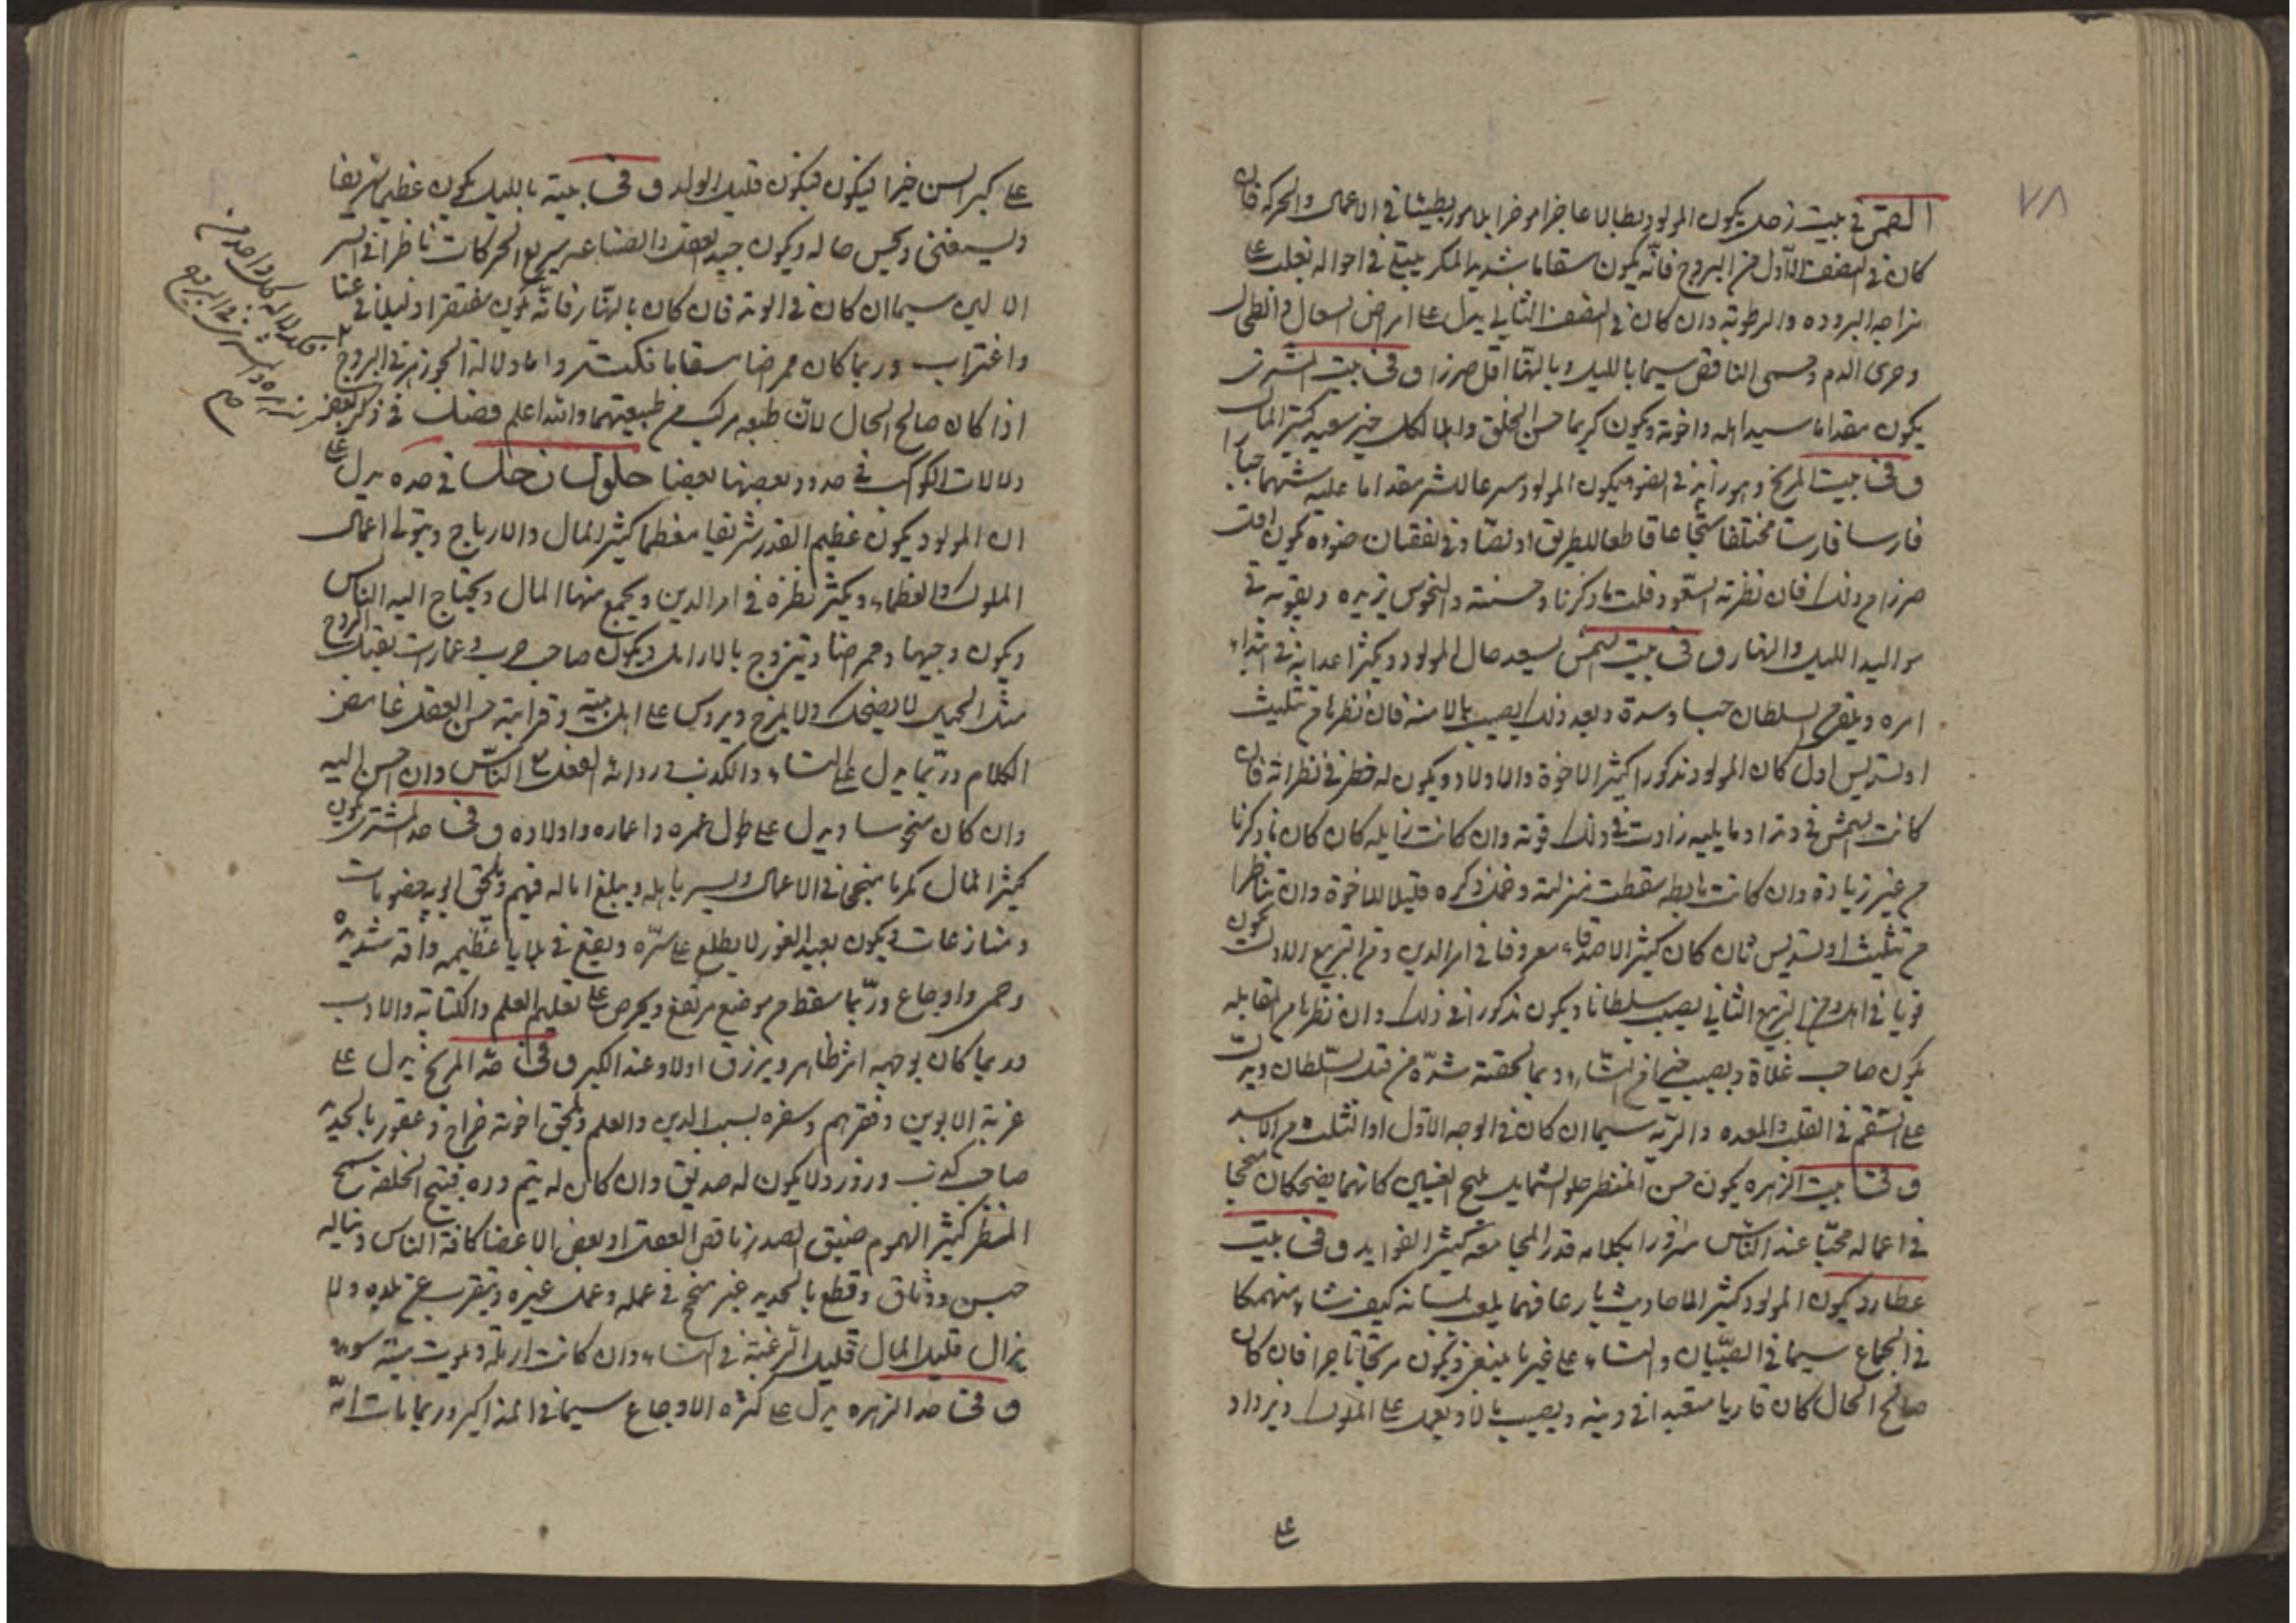 ٧٨
القمر في بيت زحل يكون المولود بطالا عاجزا موخرا بطيئا في الاعمال والحركة فان
كان في النصف الاول من البروج فانه يكون سقاما شديد المكر في احواله تغلب على
مزاجه البرودة والرطوبة وان كان في النصف الثاني يدل على امراض السعال والطحال
وحرى الدم وحمى الناقض سيما بالليل وبالنهار اقل ضررا وفي بيت المشترى
يكون مقداما سيد اهله واخوته ويكون كريما حسن الخلق خير سعيد كثير المال
وفي بيت المريخ وهو زايد في الضوء يكون المولود مقداما شهما جبارا
فارسا شجاعا قاطعا للطريق او لصا وفي نقصان ضوءه يكون اقل
ضررا من ذلك فان نظرته السعود قلت ما ذكرنا وحسنته والنحوس تزيده وتقويه في
مواليد الليل والنهار وفي بيت الشمس يسعد حال المولود ويكثر اعدايه في ابتداء
امره السلطان حبسا وشدة وبعد ذلك يصيب مالا منه فان نظرها من تثليث
او تسديس اول كان المولود مذكورا كثير الاخوة والاولاد ويكون له خطر في نظرائه فان
كانت الشمس في وتد او ما يليه زادت في ذلك قوته وان كانت زايلة كان كما ذكرنا
من غير زيادة وان كانت هابطة سقطت منزلته وخمل ذكره قليلا للاخوة وان تناظرا
من تثليث او تسديس ثان كان كثير الاصدقاء معروفا في امر الدين ومن التربيع الاول يكون
قويا في اهله ومن التربيع الثاني يصيب سلطانا ويكون مذكورا في ذلك وان نظرها من المقابلة
يكون صاحب ويصيب خيرا من النساء وربما لحقته شدة من قبل السلطان ويدل
على السقم في القلب والمعدة والرية سيما ان كان في الوجه الاول او الثلث من الاسد
وفي بيت الزهره يكون حسن المنظر حلو الشمايل مليح العينين كانهما يضحكان منجحا
في اعماله محبا عند الناس مسرورا بكلامه كثير الفوايد وفي بيت
عطارد يكون المولود كثير الاحاديث بارعا فهما يلعب بلسانه كيف شاء منهمكا
في الجماع سيما في الصبيان والنساء على غير ما ينبغي ويكون تاجرا فان كان
صالح الحال كان قاريا متعبدا في دينه ويصيب مالا ويعمل على الملوك ويزداد
على
على كبر السن خيرا فيكون قليل الولد وفي بيته بالليل يكون عظيما شريفا
ويستغني ويحسن حاله ويكون جيد العقل والصناعة سريع الحركات ناظرا في السر
الالهي سيما ان كان في الوتد فان كان بالنهار فانه يكون مفتقرا ذليلا في عنا
واغتراب وربما كان ممراضا سقاما واما دلالة الجوزهر في البروج
اذا كان صالح الحال لان طبعه مركب من طبيعتهما والله اعلم فصل في ذكر بعض
دلالات الكواكب في حدود بعضها بعضا حلول زحل في حده يدل على
ان المولود يكون عظيم القدر شريفا معظما كثير المال والارباح ويتولى اعمال
الملوك والعظماء ويكثر نظره في امر الدين ويجمع منها المال ويحتاج اليه الناس
ويكون وجيها وممراضا ويتزوج بالارامل ويكون صاحب حرب وعمارات
مثل الجبل لا يضحك ولا يمزح ويروس على اهل بيته وقرابته حسن العقل غامض
الكلام وربما يدل على النساء والكذب ورداءة الفعل مع الناس وان احسن اليه
وان كان منحوسا ويدل على طول عمره واعماره واولاده وفي حد المشترى يكون
كثير المال كريما منجحا في الاعمال ويسر باهله ويبلغ اماله فيهم ويلحق ابويه خصومات
ومنازعات ويكون بعيد الغور لا يطلع على سره ويقع في بلايا عظيمه وآفة شديدة
وحمى واوجاع وربما سقط من موضع مرتفع ويحرص على تعليم العلم والكتابة والادب
وربما كان بوجهه اثر ظاهر ويرزق اولاد عند الكبر وفي حد المريخ يدل على
غربة الابوين وفقرهم وسفره بسبب الدين والعلم ويلحق اخوته خراج وعقور بالحديد
صاحب كذب وزور ولا يكون له صديق وان كان له لم يتم وده قبيح الخلقة سمج
المنظر كثير الهموم ضيق الصدر ناقص العقل او بعض الاعضا كافة الناس ويناله
حبس ووثاق وقطع بالحديد غير منجح في عمله وعمل غيره ويتغرب عن بلده ولا
يزال قليل المال قليل الرغبة في النساء وان كانت ارملة ويموت ميتة سوء
وفي حد الزهره يدل على كثرة الاوجاع سيما في المذاكير وربما مات امه